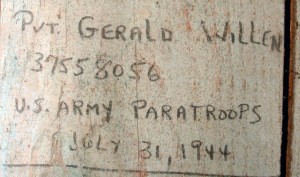 PVT. GERALD WILLEN
37558056
U.S. ARMY PARATROOPS
JULY 31, 1944